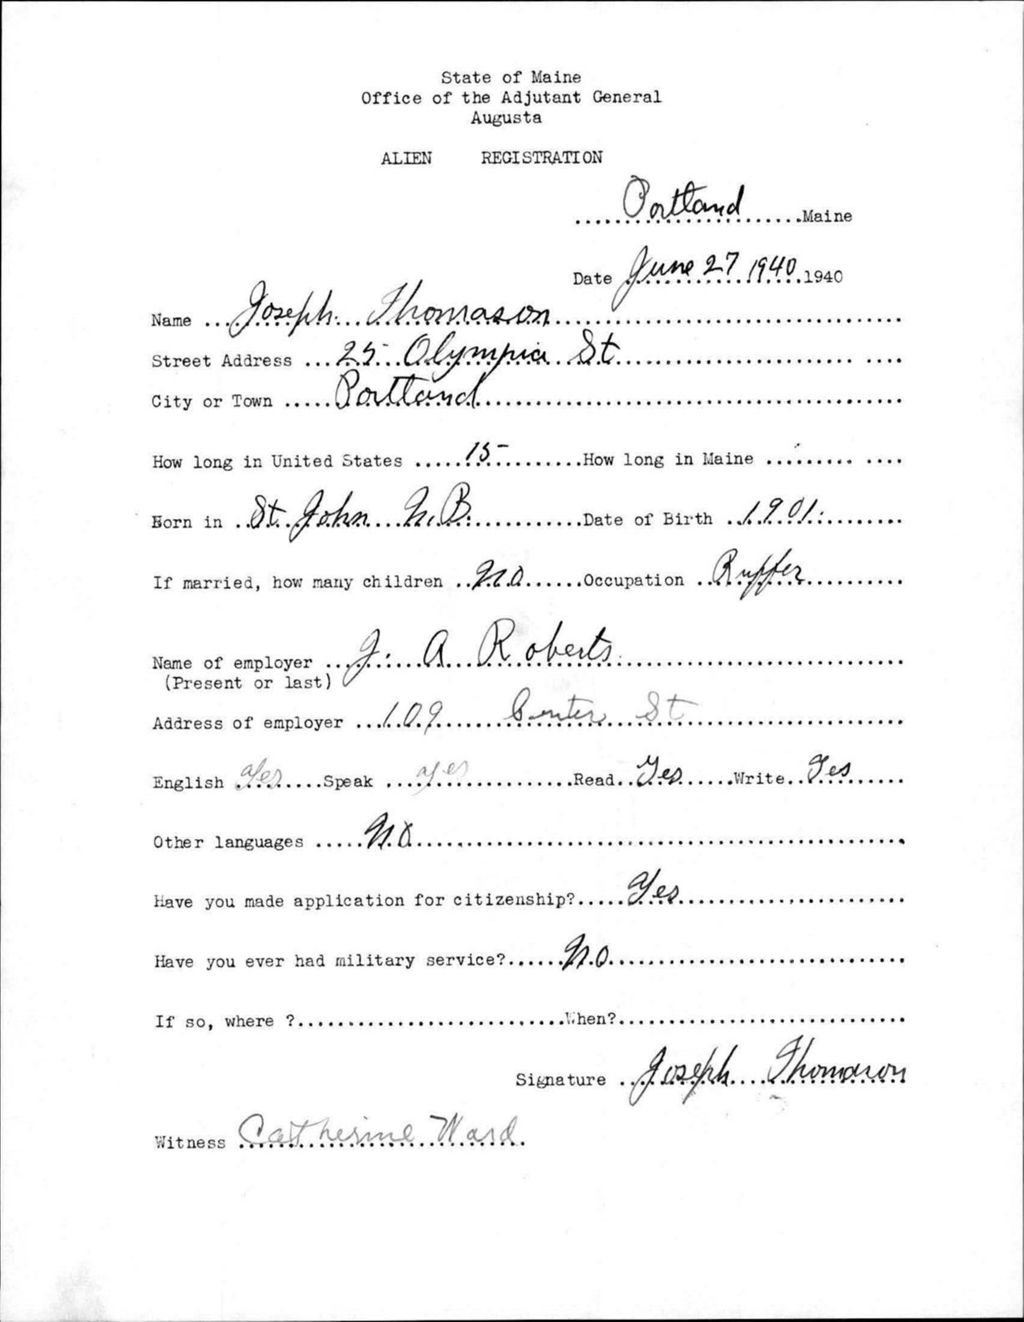 State of Maine
Office of the Adjutant General
Augusta
ALIEN REGISTRATION
Portland Maine
Date June 27 1940 1940
Name Joseph Thomason
Street Address 25 Olympia St
City or Town Portland
How long in United States 15 How long in Maine
Born in St. John N.B. Date of Birth 1901
If married, how many children No Occupation Ruffer
Name of employer J. A Roberts
(Present or last)
Address of employer 109 Center St
English Yes Speak yes Read Yes Write Yes
Other languages No
Have you made application for citizenship? Yes
Have you ever had military service? No
If so, where ? When?
Signature Joseph Thomason
Witness Catherine Ward